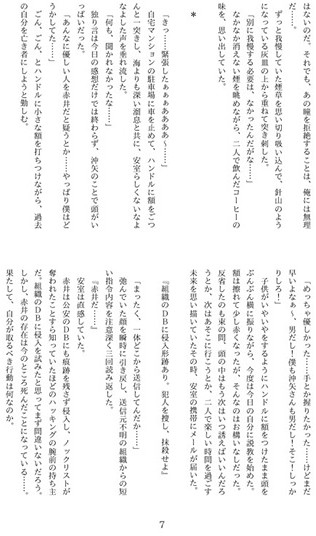 はないのだ。それでも、あの瞳を拒絶することは、俺には無理
だ。
ずっと我慢していた煙草を思い切り吸い込んで、針山のよう
になっていた灰皿の上から重ねて突き刺した。
「別に我慢する必要は、なかったんだがな……」
なかなか消えない煙を眺めながら、二人で飲んだコーヒーの
味を、思い出していた。
＊
「きっ……緊張したぁぁぁぁあああ～……」
自宅マンションの駐車場に車を止めて、ハンドルに額をごつ
んと一突きし、海よりも深い溜息と共に、安室らしくないなよ
なよした声を垂れ流した。
「何も、聞かれなかったな……」
独り言は今日の感想だけでは終わらず、沖矢のことで頭がい
っぱいだった。
「あんなに優しい人を赤井だと疑うとか……やっぱり僕はど
うかしてた……」
ごん、ごん、とハンドルに小さな額を打ちつけながら、過去
の自分を亡き者にしようと勤しむ。
「めっちゃ優しかった……手とか握りたかった……けどまだ
早いよなぁ～、男だし！僕も沖矢さんも男だし！そこ！しっか
りしろ！」
子供がいやいやをするようにハンドルに額をつけたまま頭を
ぶんぶん横に振りながら、今度は今日の自分に説教を始めた。
額は擦れて少し赤くなったが、そんなのはお構いなしだった。
反省したのも束の間、頭の中はもう次はいつ誘えばいいんだろ
うとか、次はあそこに行こうとか、二人で楽しい時間を過ごす
未来を思い描いていたその時、安室の携帯にメールが届いた。
『組織のＤＢに侵入形跡あり、犯人を捜し、抹殺せよ』
「まったく、一体どこから送信してんだか……」
弛んでいた顔を瞬時に引き戻し、送信元不明の組織からの短
い指令内容を注意深く三回読み返した。
『赤井だ……』
安室は直感していた。
赤井は公安のＤＢにも痕跡を残さず侵入し、ノックリストが
奪われたことすら知っていたほどのハッキングの腕前の持ち主
だ。組織のＤＢに侵入を試みたと思ってまず間違いないだろう。
しかし、赤井の存在は今のところ死んだことになっている……。
果たして、自分が取るべき行動は何なのか。
7